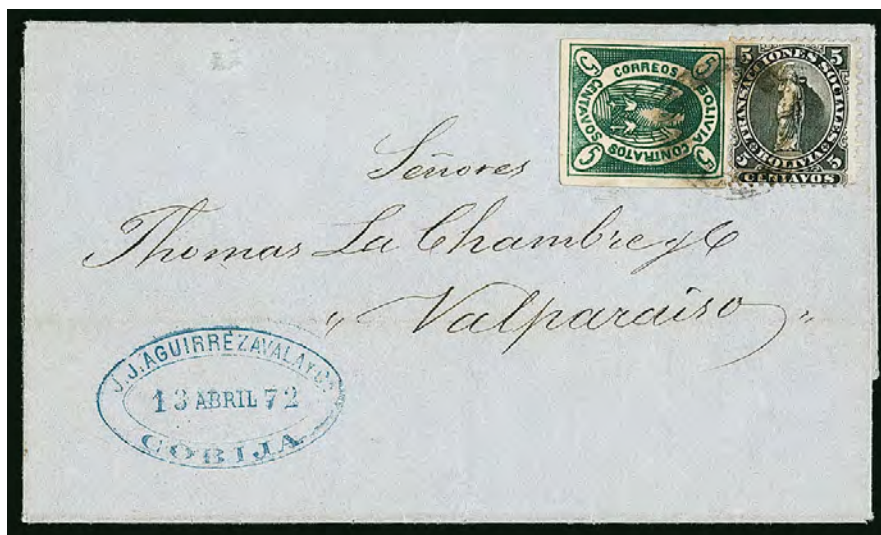 CORREOS
BOLIVIA CONTRATOS
5 CENTAVOS 5
5 5
5 5
TRANSACCIONES SOCIALES
BOLIVIA
5 5
CENTAVOS
Señores
Thomas La Chambre y C
" Valparaiso "
J.J. AGUIRREZAVALA Y Cª
13 ABRIL 72
COBIJA